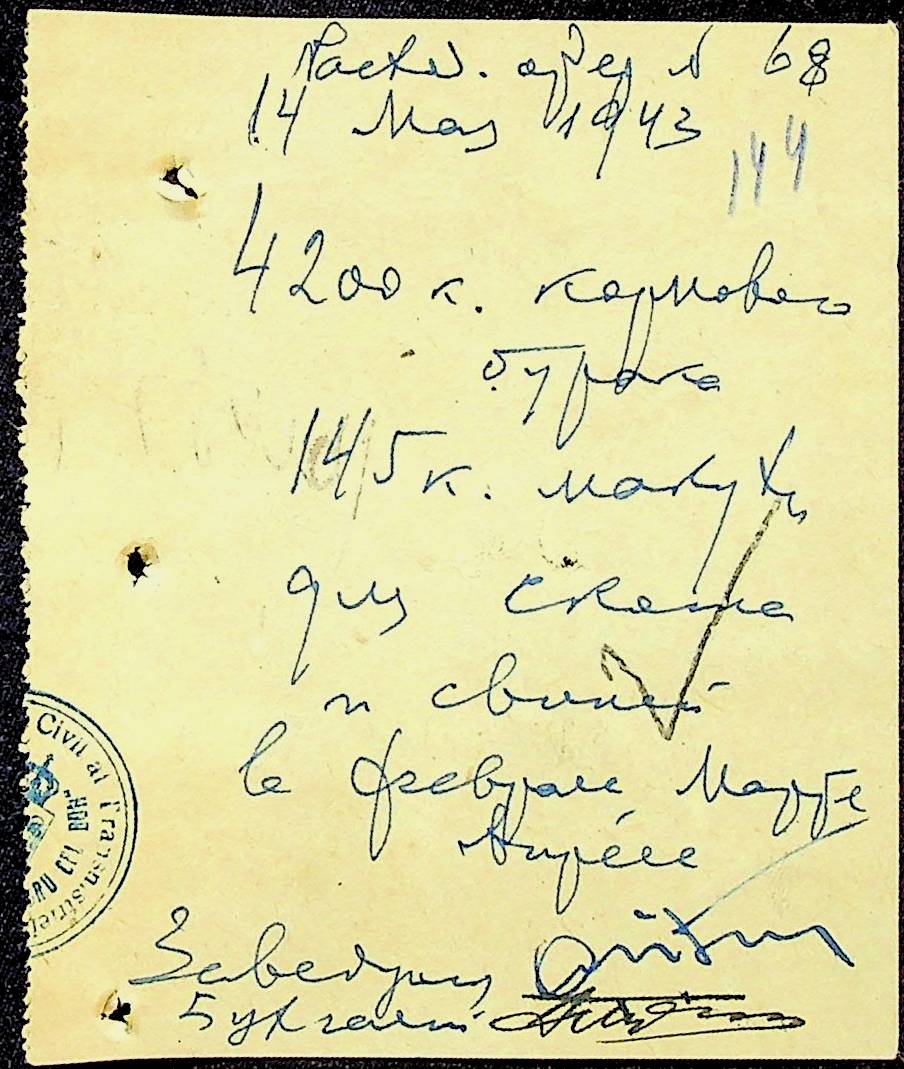 Расход. ордер № 68
14 Мая 1943
144
4200 к. кормового
бурака
145 к. макухи
для скота
и свиней
в феврале Марте
Апреле
Заведующ
Бухгалтер
Civil al Transnistriei